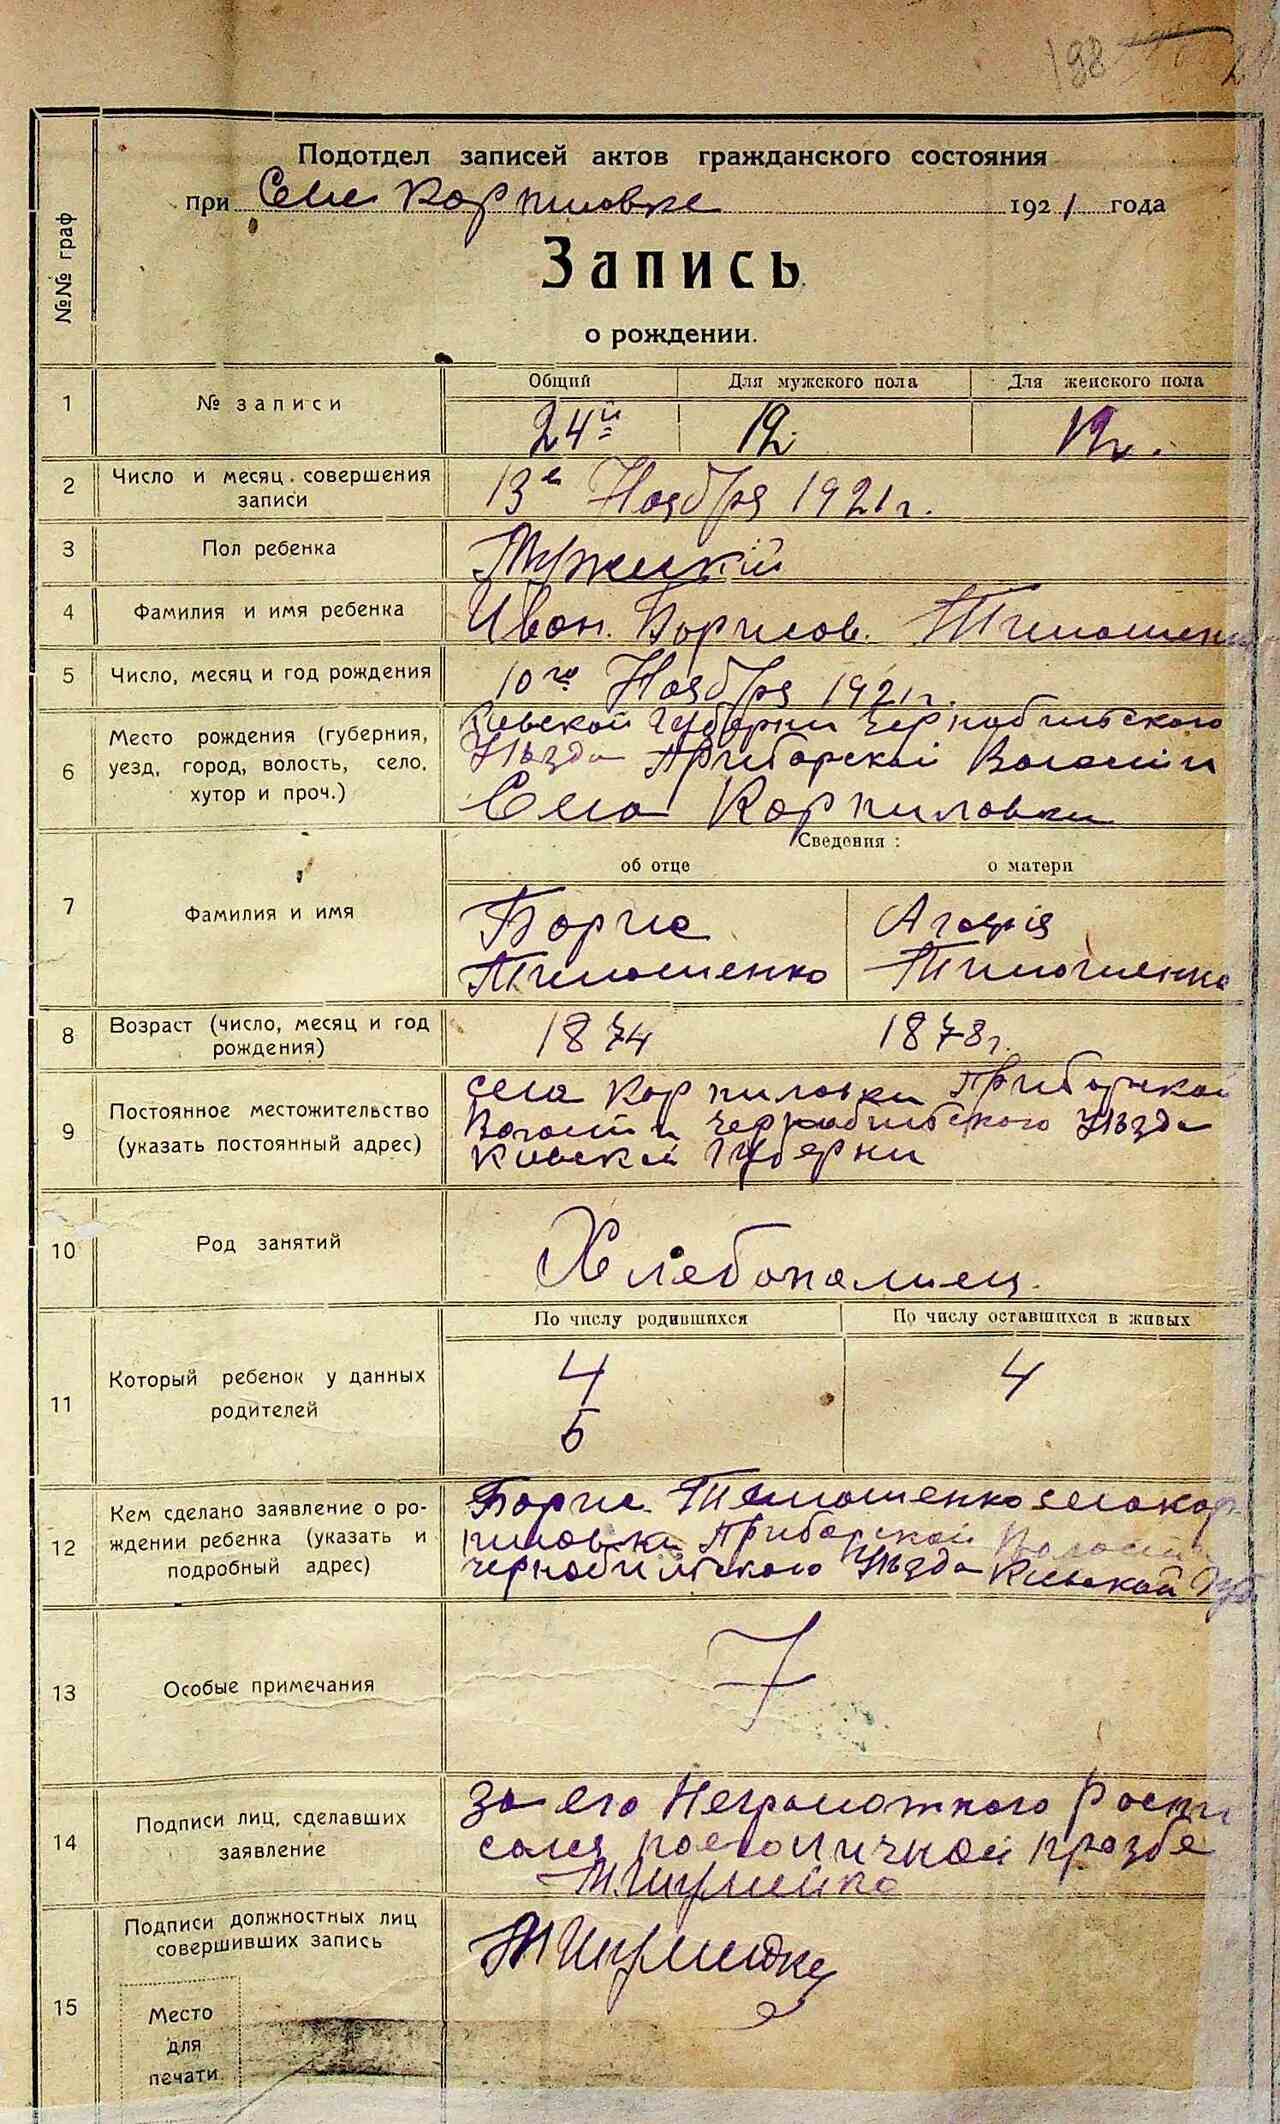 198
Подотдел записей актов гражданского состояния
при Селе Корпиловке 1921 года
№№ граф
Запись
о рождении.
Общий Для мужского пола Для женского пола
1 № записи 24й 12. 12.
2 Число и месяц совершения записи 13го Ноября 1921 г.
3 Пол ребенка Мужскій
4 Фамилия и имя ребенка Иван. Борисов. Тимошенко
5 Число, месяц и год рождения 10го Ноября 1921 г.
6 Место рождения (губерния, уезд, город, волость, село, хутор и проч.)
Киевской Губерни Чернобильского
Уѣзда Приборской Волости
Села Корпиловки
Сведения:
об отце о матери
7 Фамилия и имя
Борис Агафія
Тимошенко Тимошенко
8 Возраст (число, месяц и год рождения) 1874 1878 г.
9 Постоянное местожительство (указать постоянный адрес)
села Корпиловки Приборской
Волости Чернобильского Уѣзда
Киевской Губерни
10 Род занятий Хлебопашец.
По числу родившихся По числу оставшихся в живых
11 Который ребенок у данных родителей 4 4
5
12 Кем сделано заявление о рождении ребенка (указать и подробный адрес)
Борис Тимошенко села Кор
пиловки Приборской Волости
Чернобильского Уѣзда Киевской Губ
13 Особые примечания
14 Подписи лиц, сделавших заявление
За его Неграмотного Роспи
сался по личной прозбе
15 Подписи должностных лиц совершивших запись
Место
для
печати